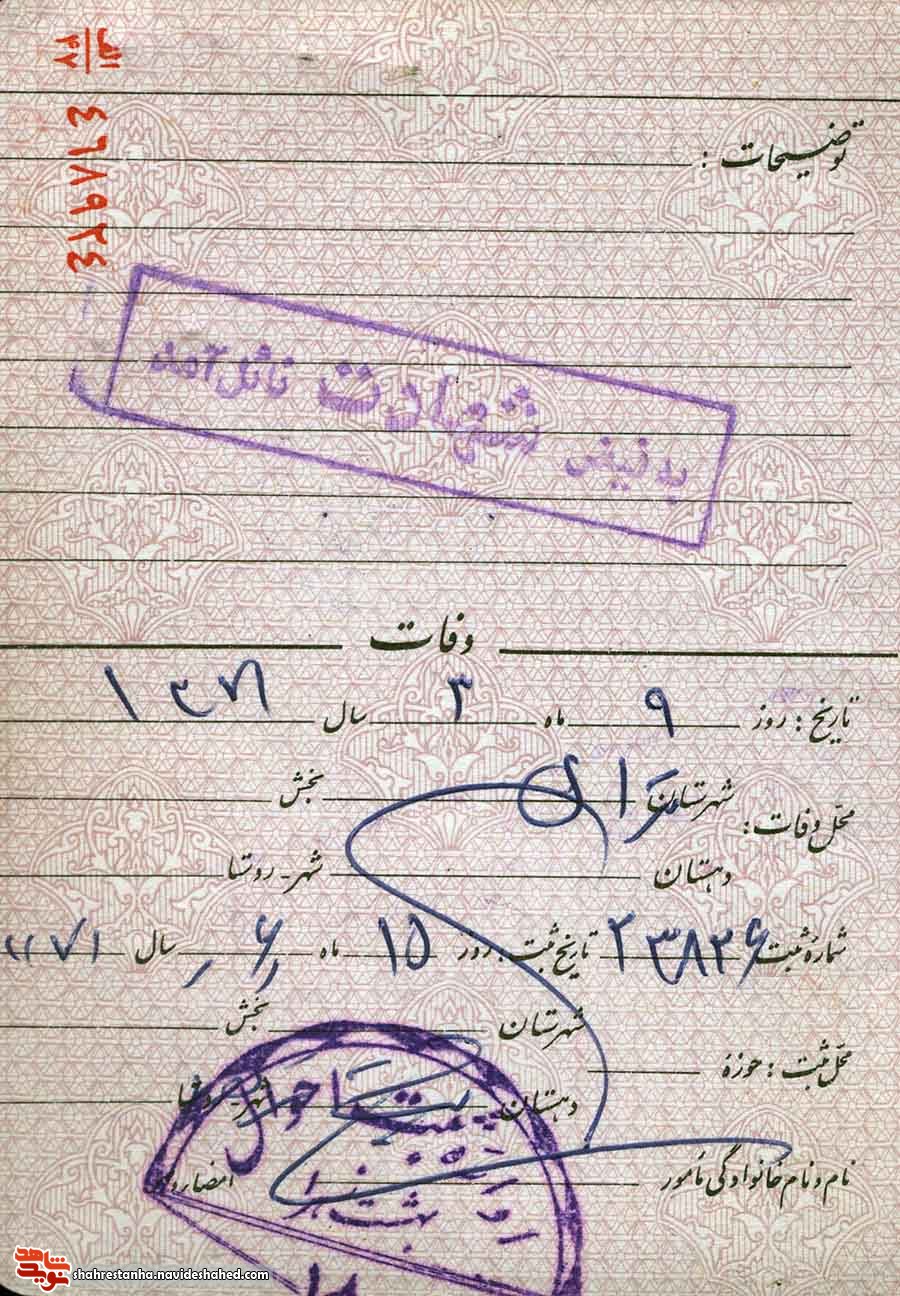 الف
۴۷
۴۶۸۹۲۴
توضیحات :
به فیض شهادت نائل آمد
وفات
تاریخ : روز ۹ ماه ۳ سال
محل وفات : شهرستان بخش
دهستان شهر - روستا
شماره ثبت تاریخ ثبت : روز ۱۵ ماه ۶ سال
محل ثبت : حوزه شهرستان بخش
دهستان شهر - روستا
نام و نام خانوادگی مأمور امضاء و مهر
ثبت احوال
بهشت زهرا
شاهد
نوید
shahrestanha.navideshahed.com